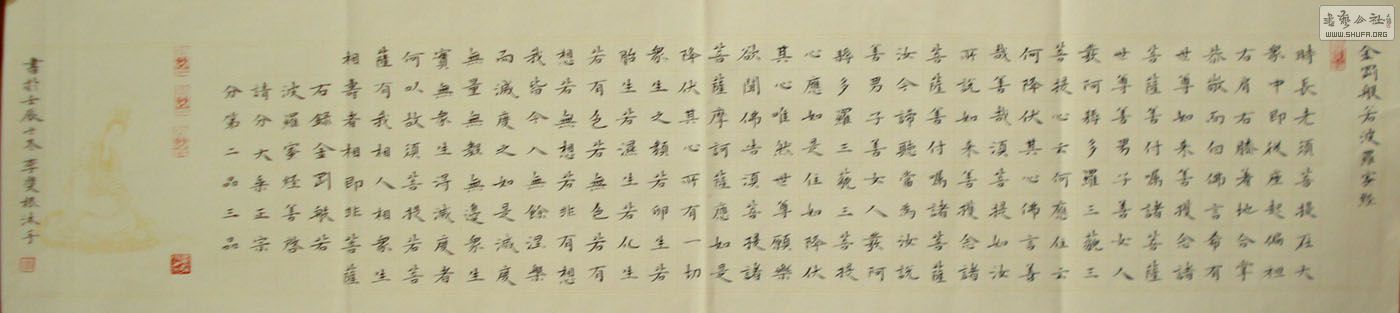 金剛般若波羅蜜經
時長老須菩提在大
衆中即從座起偏袒
右肩右膝著地合掌
恭敬而白佛言希有
世尊如来善護念諸
菩薩善付囑諸菩薩
世尊善男子善女人
發阿耨多羅三藐三
菩提心云何應住云
何降伏其心佛言善
哉善哉須菩提如汝
所說如来善護念諸
菩薩善付囑諸菩薩
汝今諦聽當為汝說
善男子善女人發阿
耨多羅三藐三菩提
心應如是住如降伏
其心唯然世尊願樂
欲聞佛告須菩提諸
菩薩摩訶薩應如是
降伏其心所有一切
衆生之類若卵生若
胎生若濕生若化生
若有色若無色若有
想若無想若非有想
我皆令入無餘涅槃
而滅度之如是滅度
無量無數無邊衆生
實無衆生得滅度者
何以故須菩提若菩
薩有我相人相衆生
相壽者相即非菩薩
右錄金剛般若
波羅蜜經善啓
請分大乘正宗
分第二品三品
書於壬辰 李 根沐手
書藝公社
WWW.SHUFA.ORG